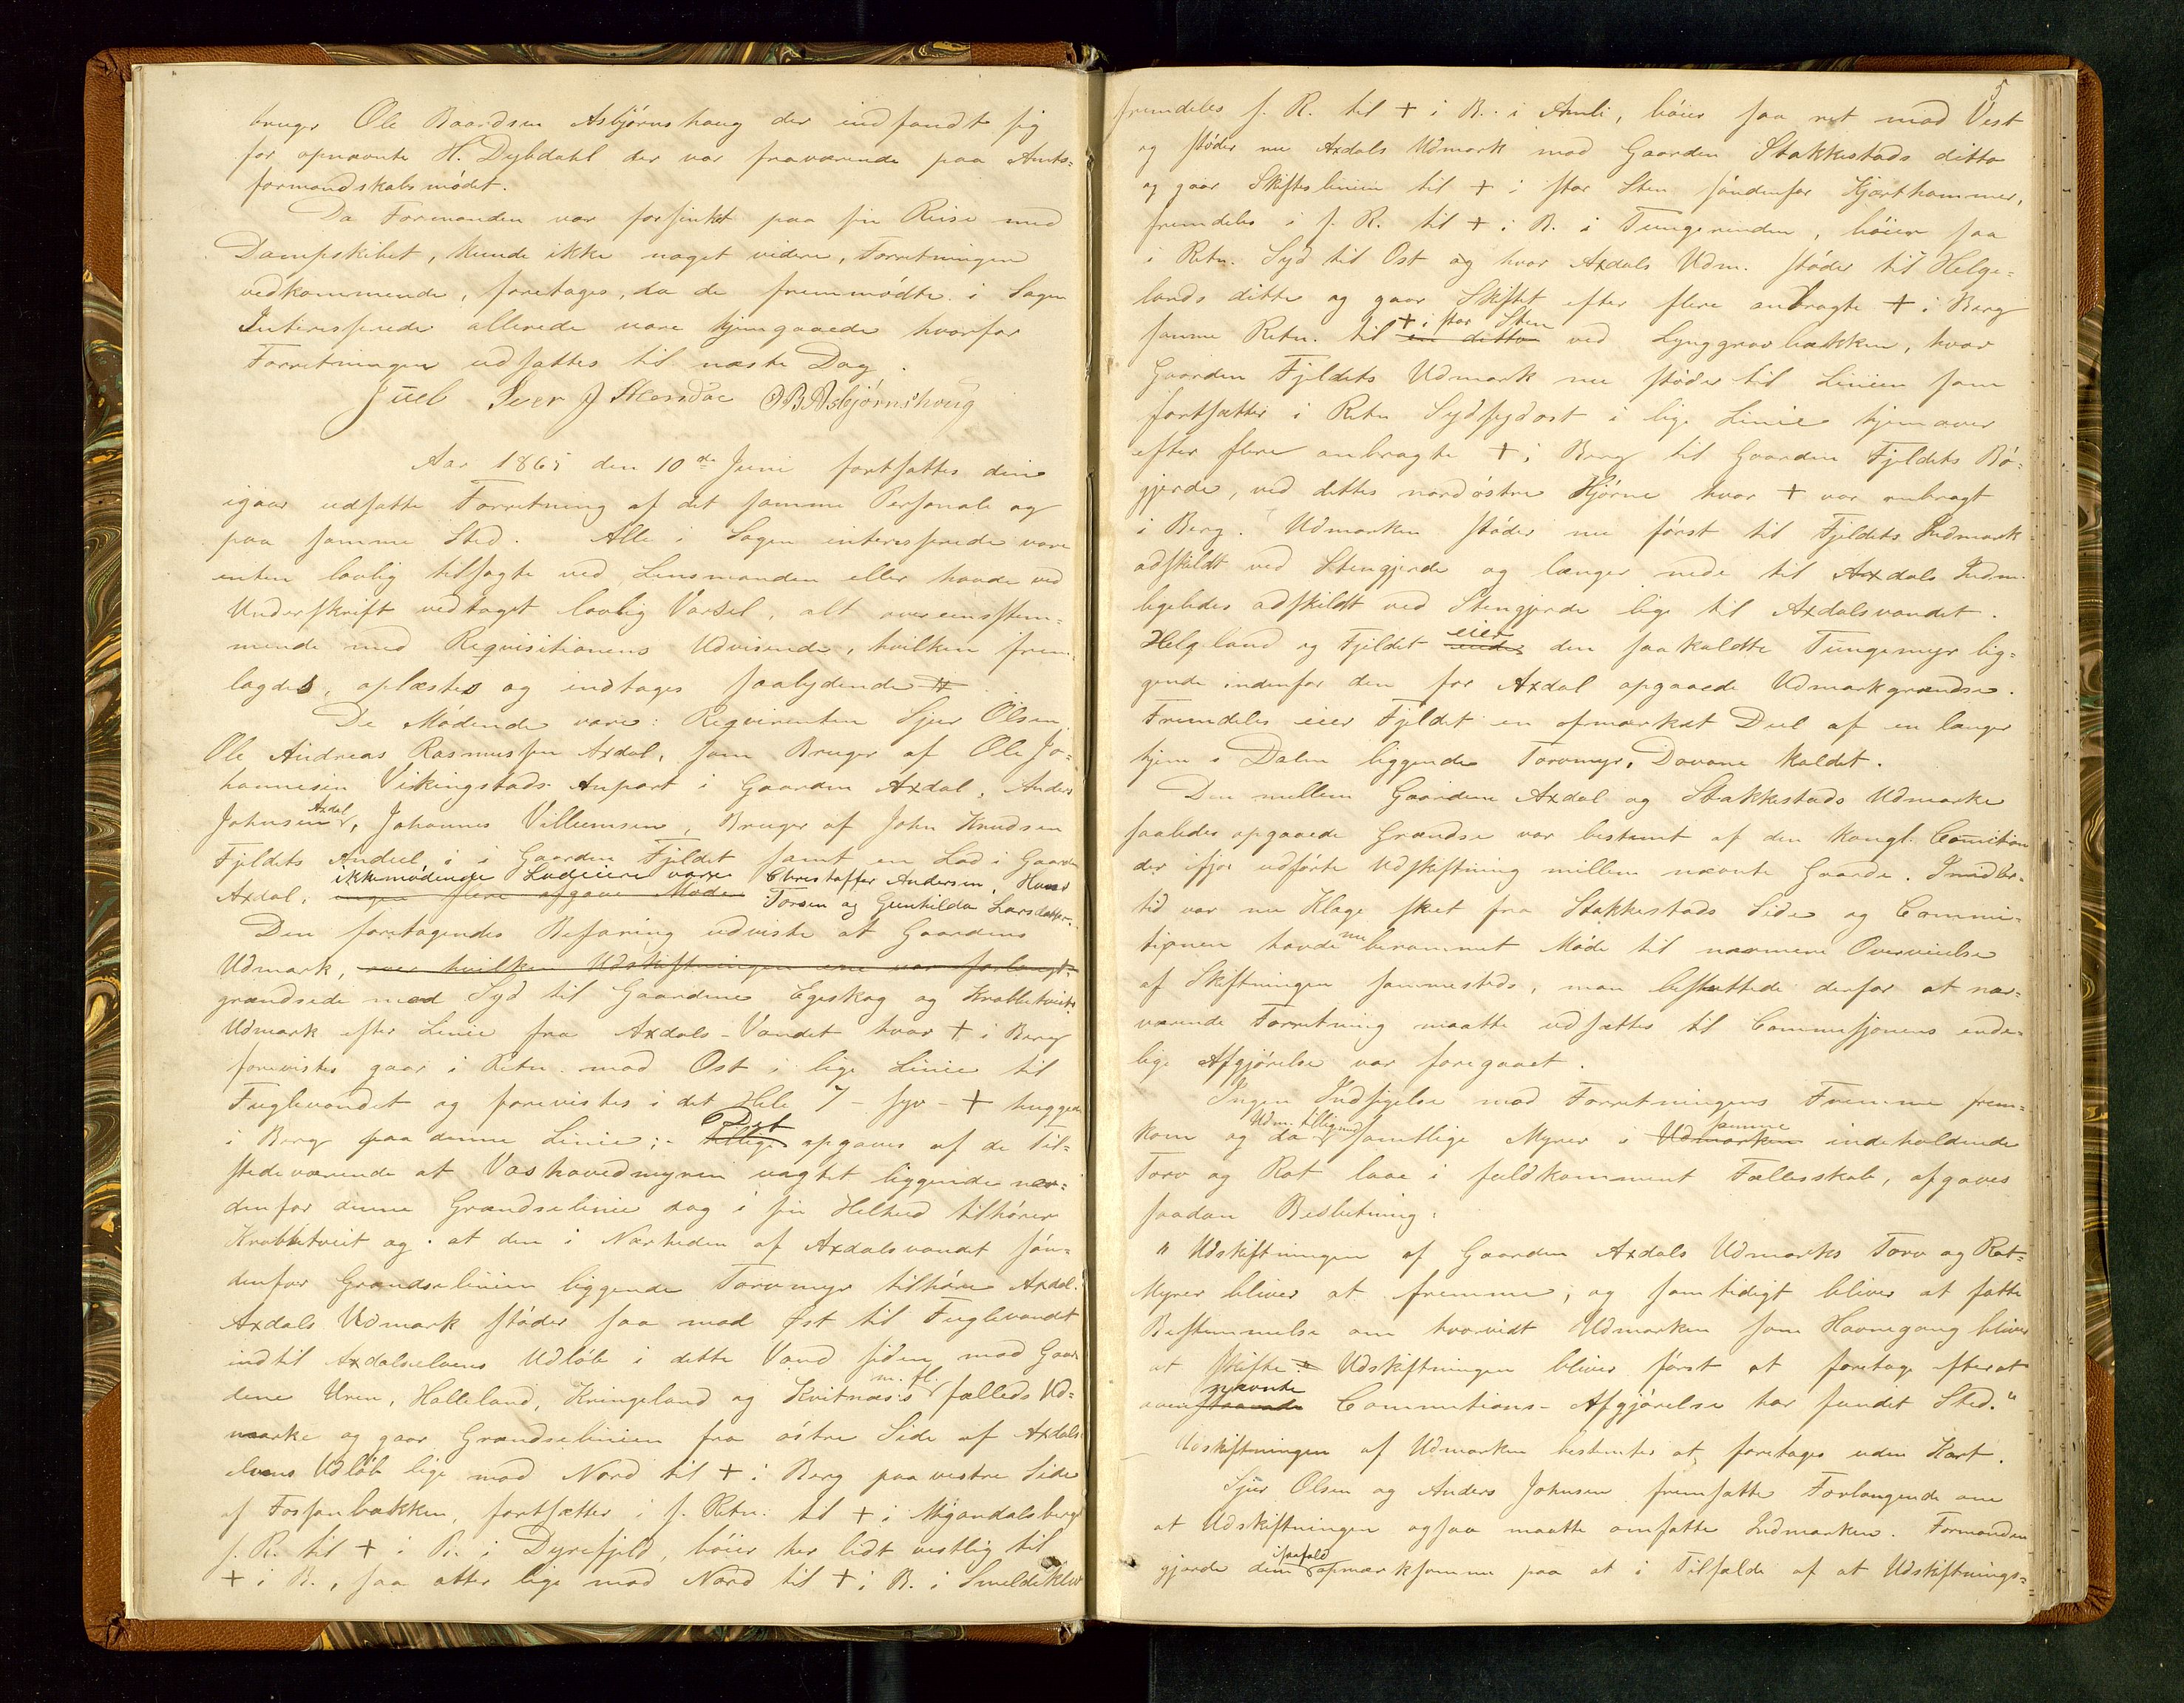 bruger Ole Baardsen Asbjörnshaug der indfandt sig
for opnævnte H. Dybdahl der var fraværende paa Amts-
formandskabsmödet.
Da Formanden var forsinket paa sin Reise med
Dampskibet, kunde ikke noget videre, Forretningen
vedkommende, foretages, da de fremmödte i Sagen
Interesserede allerede vare hjemgaaede hvorfor
Forretningen udsattes til næste Dag.
Juel Iver J OBAsbjørnshoug
Aar 1865 den 10de Juni fortsattes den
igaar udsatte Forretning af det samme Personale og
paa samme Sted. Alle i Sagen interesserede vare
enten lovlig tilsagte ved Lensmanden eller havde ved
Underskrift vedtaget lovlig Varsel, alt overeensstem-
mende med Reqvisitionens Udvisende, hvilken frem-
lagdes, oplæstes og indtages saalydende #
De Mödende vare: Reqvirenten Sjur Olsen,
Ole Andreas Rasmussen Axdal, som Bruger af Ole Jo-
hannesen Vikingstads Anpart i Gaarden Axdal, Anders
Johnsen Axdal, Johannes Villumsen, Bruger af John Knudsen
Fjeldets Andeel i Gaarden Fjeldet samt en Lod i Gaarden
Axdal, ingen flere afgave Möde ikkemödende Lodeiere vare Christoffer Andersen, Hans
Torsen og Gunhilda Larsdatter.
Den foretagendes Befaring udviste at Gaardens
Udmark, over hvilken Udskiftningen ene var forlangt,
grændsede mod Syd til Gaardene Egeskog og Krabbetveits
Udmark efter Linie fra Axdals-Vandet hvor + i Berg
forevistes gaar i Retn. mod Ost i lige Linie til
Fuglevandet og forevistes i det Hele 7 - syv - + huggede
i Berg paa denne Linie; - Tillige Det opgaves af de Til-
stedeværende at Vashovedmyren uagtet liggende nor-
denfor denne Grændselinie dog i sin Helhed tilhörer
Krabbetveit og at den i Nærheden af Axdalsvandet sön-
denfor Grændselinien liggende Torvmyr tilhörer Axdal.
Axdals Udmark stöder saa mod Øst til Fuglevandet
indtil Axdalselvens Udlöb i dette Vand siden mod Gaar-
dene Uren, Halleland, Kringeland og Kvitnæs's m. fl. fælleds Ud-
marke og gaar Grændselinien fra östre Side af Axdals-
elvens Udlöb lige mod Nord til + i Berg paa vestre Side
af Fossanbækken, fortsætter i s. Retn. til + i Migandalsberget
s. R. til + i B. i Dyrefjeld, böier her lidt vestlig til
+ i B., saa atter lige mod Nord til + i B. i Smeldeklev
5
fremdeles s. R. til + i B. i Amli, böier saa ret mod Vest
og stöder nu Axdals Udmark mod Gaarden Stakkestads ditto
og gaar Skifteslinien til + i stor Sten söndenfor Hjorthammer,
fremdeles i s. R. til + i B. i Tungerinden, böier saa
i Retn. Syd til Ost og hvor Axdals Udm. stöder til Helge-
lands ditto og gaar Skiftet efter flere anbragte + i Berg
samme Retn. til en ditto + i stor Sten ved Lynggravbækken, hvor
Gaarden Fjeldets Udmark nu stöder til Linien som
fortsætter i Retn Sydsydost i lige Linie hjemover
efter flere anbragte + i Berg til Gaarden Fjeldets Bö-
gjerde, ved dettes nordöstre Hjörne hvor + var anbragt
i Berg. Udmarken stöder nu först til Fjeldets Indmark
adskildt ved Stengjerde og længer nede til Axdals Indm.
ligeledes adskildt ved Stengjerde lige til Axdalsvandet.
Helgeland og Fjeldet eier den saakaldte Tungemyr lig-
gende indenfor den for Axdal opgaaede Udmarkgrændse.
Fremdeles eier Fjeldet en opmærket Deel af en længer
hjem i Dalen liggende Torvmyr, Dovane kaldet.
Den mellem Gaardene Axdal og Stakkestads Udmarke
saaledes opgaaede Grændse var bestemt af den kongl. Comition
der ifjor udförte Udskiftning mellem nævnte Gaarde. Imidler-
tid var nu Klage skeet fra Stakkestads Side og Commi-
tionen havde nu berammet Möde til nærmere Overveielse
af Skiftningen sammesteds, man besluttede derfor at nær-
værende Forretning maatte udsættes til Commissjonens ende-
lige Afgjörelse var foregaaet.
Ingen Indsigelse mod Forretningens Fremme frem-
kom og da Udm. tilligemed samtlige Myrer i Udmarken samme indeholdende
Torv og Rot laae i fuldkomment Fællesskab, afgaves
saadan Beslutning:
" Udskiftningen af Gaarden Axdals Udmarks Torv og Rot-
Myrer bliver at fremme, og samtidigt bliver at fatte
Bestemmelse om hvorvidt Udmarken som Havnegang bliver
at skifte. Udskiftningen bliver först at foretage efterat
ovenstaaende nævnte Commitions-Afgjörelse har fundet Sted."
Udskiftningen af Udmarken bestemtes at foretages uden Kart.
Sjur Olsen og Anders Johnsen fremsatte Forlangende om
at Udskiftningen ogsaa maatte omfatte Indmarken. Formanden
gjorde dem isaafald opmærksomme paa at i Tilfælde af at Udskiftnings-